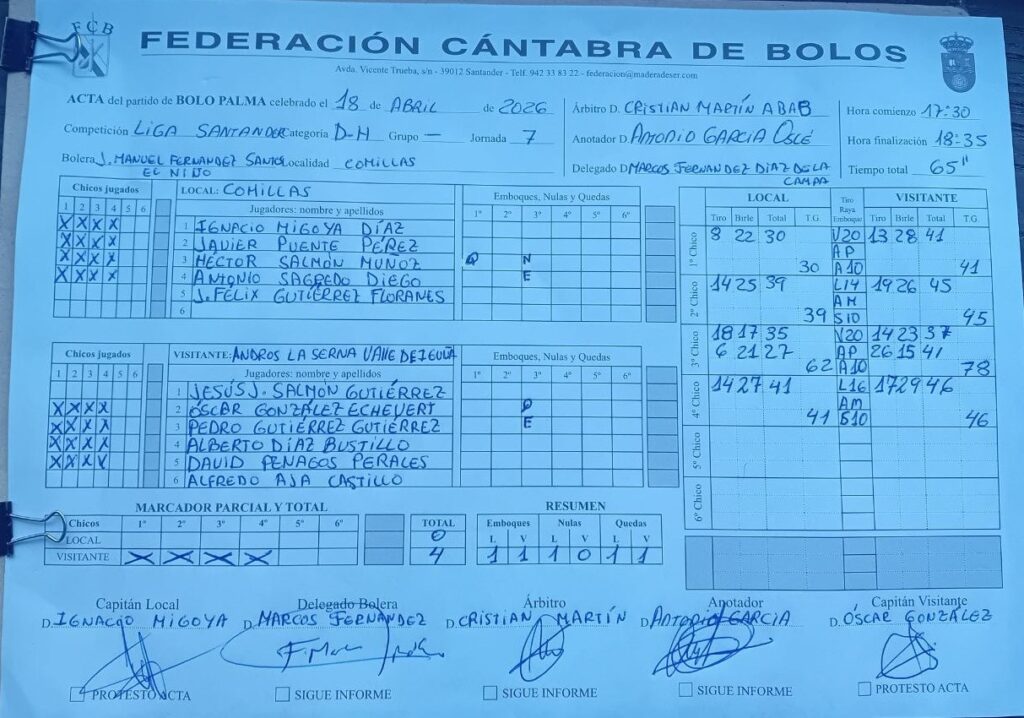 FCB
FEDERACIÓN CÁNTABRA DE BOLOS
Avda. Vicente Trueba, s/n - 39012 Santander - Telf. 942 33 83 22 - federacion@maderadeser.com
ACTA del partido de BOLO PALMA celebrado el 18 de ABRIL de 2026
Árbitro D. CRISTIAN MARTÍN ABAB
Hora comienzo 17:30
Competición LIGA SANTANDER Categoría D-H Grupo — Jornada 7
Anotador D. ANTONIO GARCIA OSLÉ
Hora finalización 18:35
Bolera J. MANUEL FERNANDEZ SANTOS EL NIJO Localidad COMILLAS
Delegado D. MARCOS FERNANDEZ DIAZ DE LA CAMPA
Tiempo total 65"
Chicos jugados
1 2 3 4 5 6
LOCAL: COMILLAS
Jugadores: nombre y apellidos
Emboques, Nulas y Quedas
1º 2º 3º 4º 5º 6º
X X X X 1 IGNACIO MIGOYA DÍAZ
X X X X 2 JAVIER PUENTE PÉREZ
X X X X 3 HÉCTOR SALMÓN MUÑOZ Q N
X X X X 4 ANTONIO SAGREDO DIEGO E
5 J. FÉLIX GUTIÉRREZ FLORANES
6
Chicos jugados
1 2 3 4 5 6
VISITANTE: ANDROS LA SERNA VALLE DE IGUÑA
Jugadores: nombre y apellidos
Emboques, Nulas y Quedas
1º 2º 3º 4º 5º 6º
1 JESÚS J. SALMÓN GUTIÉRREZ
X X X X 2 ÓSCAR GONZÁLEZ ECHEVERT Q
X X X X 3 PEDRO GUTIÉRREZ GUTIÉRREZ E
X X X X 4 ALBERTO DÍAZ BUSTILLO
X X X X 5 DAVID PENAGOS PERALES
6 ALFREDO AJA CASTILLO
LOCAL
Tiro Raya Emboque
VISITANTE
Tiro Birle Total T.G.
Tiro Birle Total T.G.
1º Chico
8 22 30 V20 13 28 41
AP
30 A10 41
2º Chico
14 25 39 L14 19 26 45
AM
39 S10 45
3º Chico
18 17 35 V20 14 23 37
6 21 27 AP 26 15 41
62 A10 78
4º Chico
14 27 41 L16 17 29 46
AM
41 S10 46
5º Chico
6º Chico
MARCADOR PARCIAL Y TOTAL
Chicos 1º 2º 3º 4º 5º 6º TOTAL
LOCAL 0
VISITANTE X X X X 4
RESUMEN
Emboques Nulas Quedas
L V L V L V
1 1 1 0 1 1
Capitán Local
D. IGNACIO MIGOYA
PROTESTO ACTA
Delegado Bolera
D. MARCOS FERNÁNDEZ
SIGUE INFORME
Árbitro
D. CRISTIAN MARTÍN
SIGUE INFORME
Anotador
D. ANTONIO GARCIA
SIGUE INFORME
Capitán Visitante
D. ÓSCAR GONZÁLEZ
PROTESTO ACTA